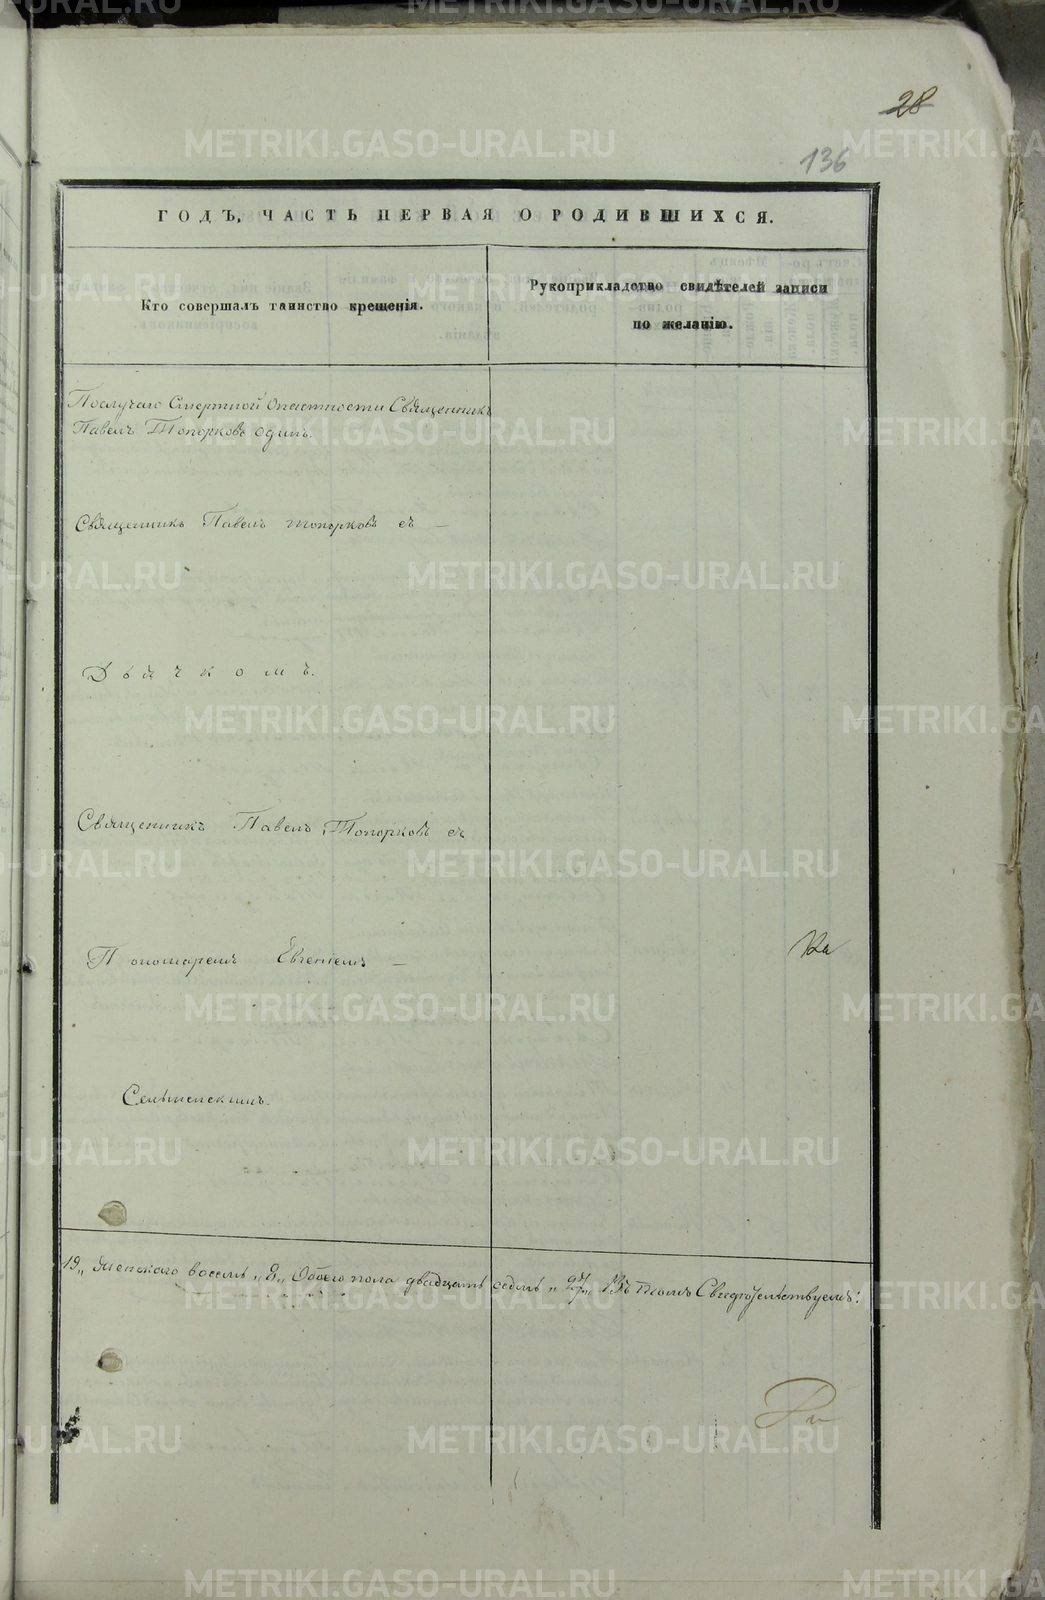 28
136
ГОДЪ, ЧАСТЬ ПЕРВАЯ О РОДИВШИХСЯ.
Кто совершалъ таинство крещенія.
Рукоприкладство свидѣтелей записи
по желанію.
Послучаю Смертной Опастности Священникъ
Павелъ Топорковъ одинъ.
Священникъ Павелъ Топорковъ съ —
Дьячкомъ.
Священникъ Павелъ Топорковъ съ
Пономаремъ Евгеніемъ —
19,, Женскаго восемь ,,8,, Обоего пола двадцать седмь ,,27,, Въ томъ Свидѣтельствуемъ:
METRIKI.GASO-URAL.RU